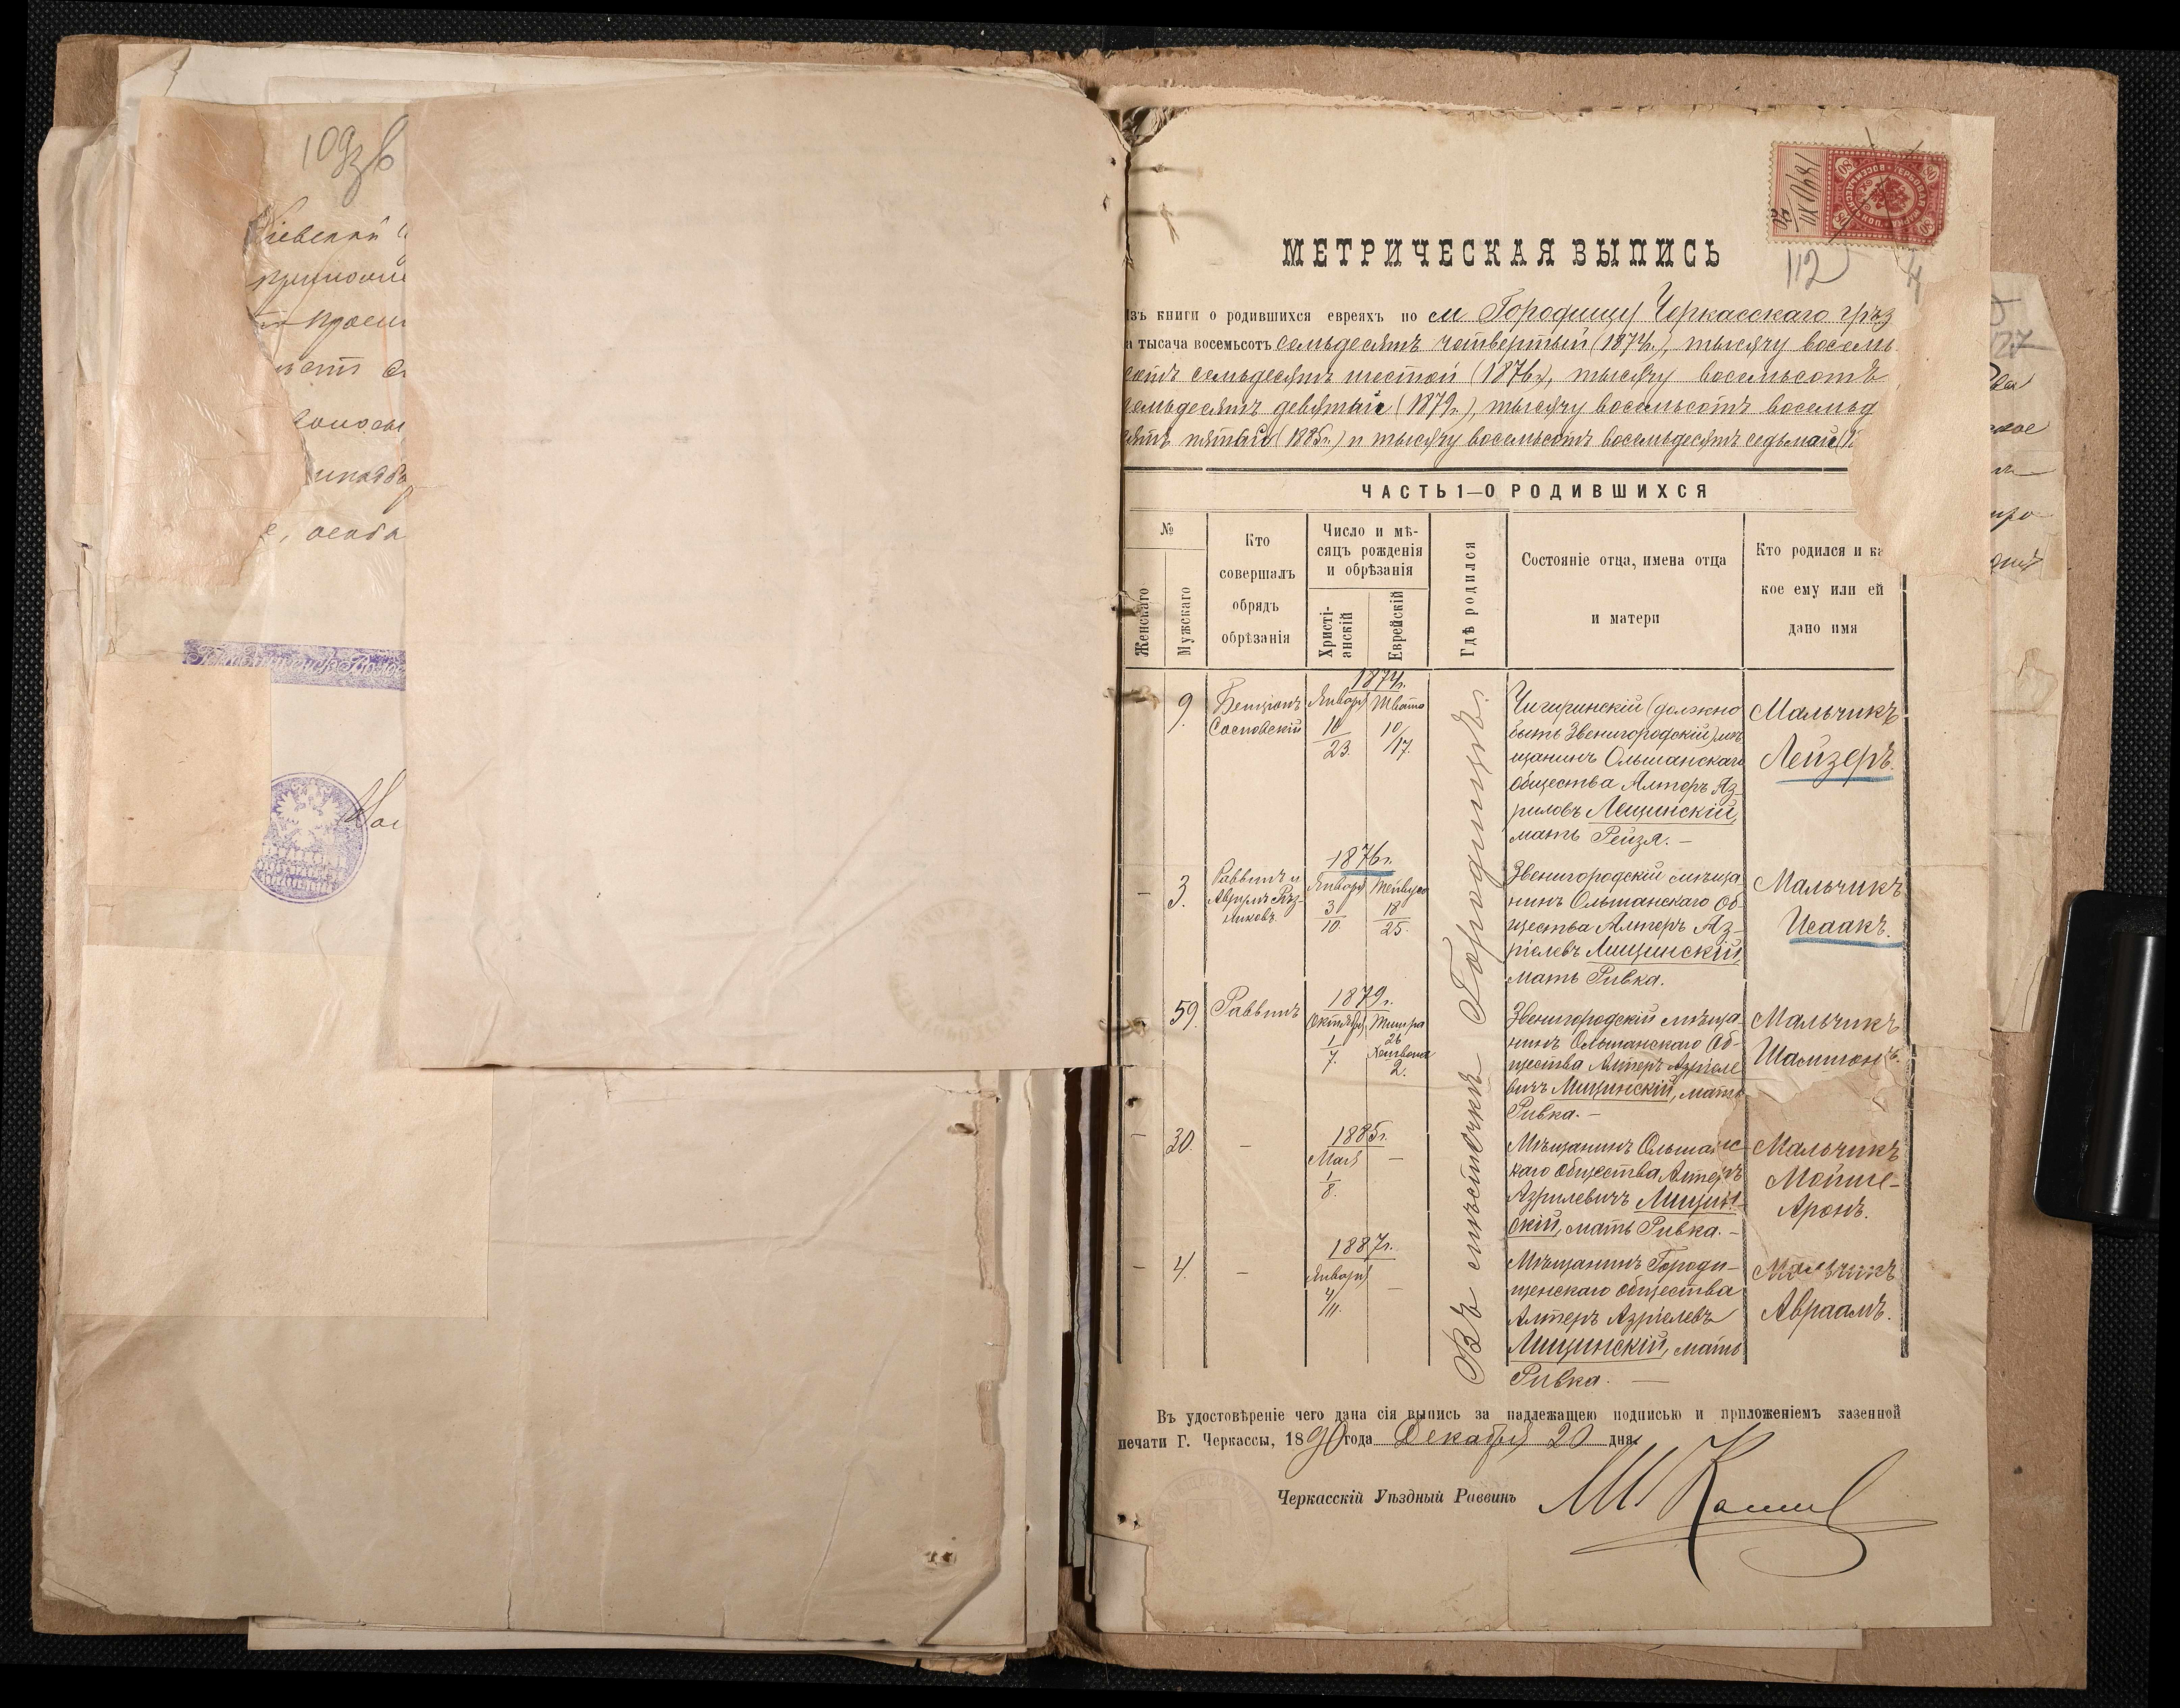 109
МЕТРИЧЕСКАЯ ВЫПИСЬ
112
изъ книги о родившихся евреяхъ по м Городищу Черкасскаго уѣз
а тысяча восемьсотъ семьдесятъ четвертый (1874г.), тысячу восемь
сотъ семьдесятъ шестой (1876г), тысячу восемьсотъ
семьдесятъ девятый (1879г.), тысячу восемьсотъ восемьд
сятъ пятаго (1885г.) и тысячу восемьсотъ восемьдесятъ седьмаго
ЧАСТЬ 1—О РОДИВШИХСЯ
№
Женскаго
Мужскаго
Кто
совершалъ
обрядъ
обрѣзанія
Число и мѣ-
сяцъ рожденія
и обрѣзанія
Христі-
анскій
Еврейскій
Гдѣ родился
Состояніе отца, имена отца
и матери
Кто родился и ка
кое ему или ей
дано имя
Въ мѣстечкѣ Городищѣ.
9.
Бенціонъ
Сосновскій
1874г.
Января
10
23.
Швата
10
17.
Чигиринскій (должно
быть Звенигородскій) мѣ
щанинъ Ольшанскаго
общества Алтеръ Аз-
риловъ Лещинскій,
мать Рейзя. —
Мальчикъ
Лейзеръ.
— 3.
Раввинъ и
Аврумъ Рѣз-
никовъ.
1876г.
Января
3
10.
18
25.
Звенигородскій мѣща
нинъ Ольшанскаго Об-
щества Алтеръ Аз-
ріелевъ Лищинскій,
мать Ривка.
Мальчикъ
Исаакъ.
59.
Раввинъ
1879г.
Октября
1
7.
Тишра
26
Хешвона
2.
Звенигородскій мѣща-
нинъ Ольшанскаго Об-
щества Алтеръ Азріеле
вичъ Лищинскій, мать
Ривка. —
Мальчикъ
Шамшонъ.
— 30. —
1885г.
Мая —
1
8.
Мѣщанинъ Ольшанс
каго общества Алтеръ
Азрилевичъ Лищин-
скій, мать Ривка. —
Мальчикъ
Мойше-
Аронъ.
— 4. —
1887г.
Января —
4
11.
Мѣщанинъ Городи-
щенскаго общества
Алтеръ Азріелевъ
Лищинскій, мать
Ривка. —
Мальчикъ
Авраамъ.
Въ удостовѣреніе чего дана сія выпись за надлежащею подписью и приложеніемъ казенной
печати Г. Черкассы, 1890 года Декабря 20 дня.
Черкасскій Уѣздный Раввинъ